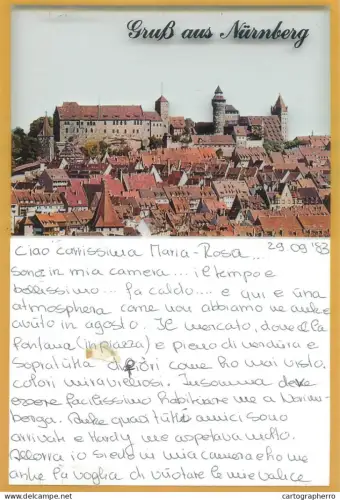 Gruß aus Nürnberg
Ciao carissima Maria-Rosa... 29 09 '83
sono in mia camera... il tempo e
bellissimo... fa caldo... e qui e una
atmosphera come non abbiamo ne anke
avuto in agosto. Il mercato, dove e la
fontana (in piazza) e pieno di verdura e
sopratutta di fiori come ho mai visto.
colori miravigliosi. Insomma deve
essere facilissimo habituare me a Norim-
berga. Anke quasi tutti amici sono
arrivati e Hardy me aspetava molto.
Allora io siedo in mia camera e ho me
anke la voglia di vuotare le mie valice
www.cartographero.com
cartographero